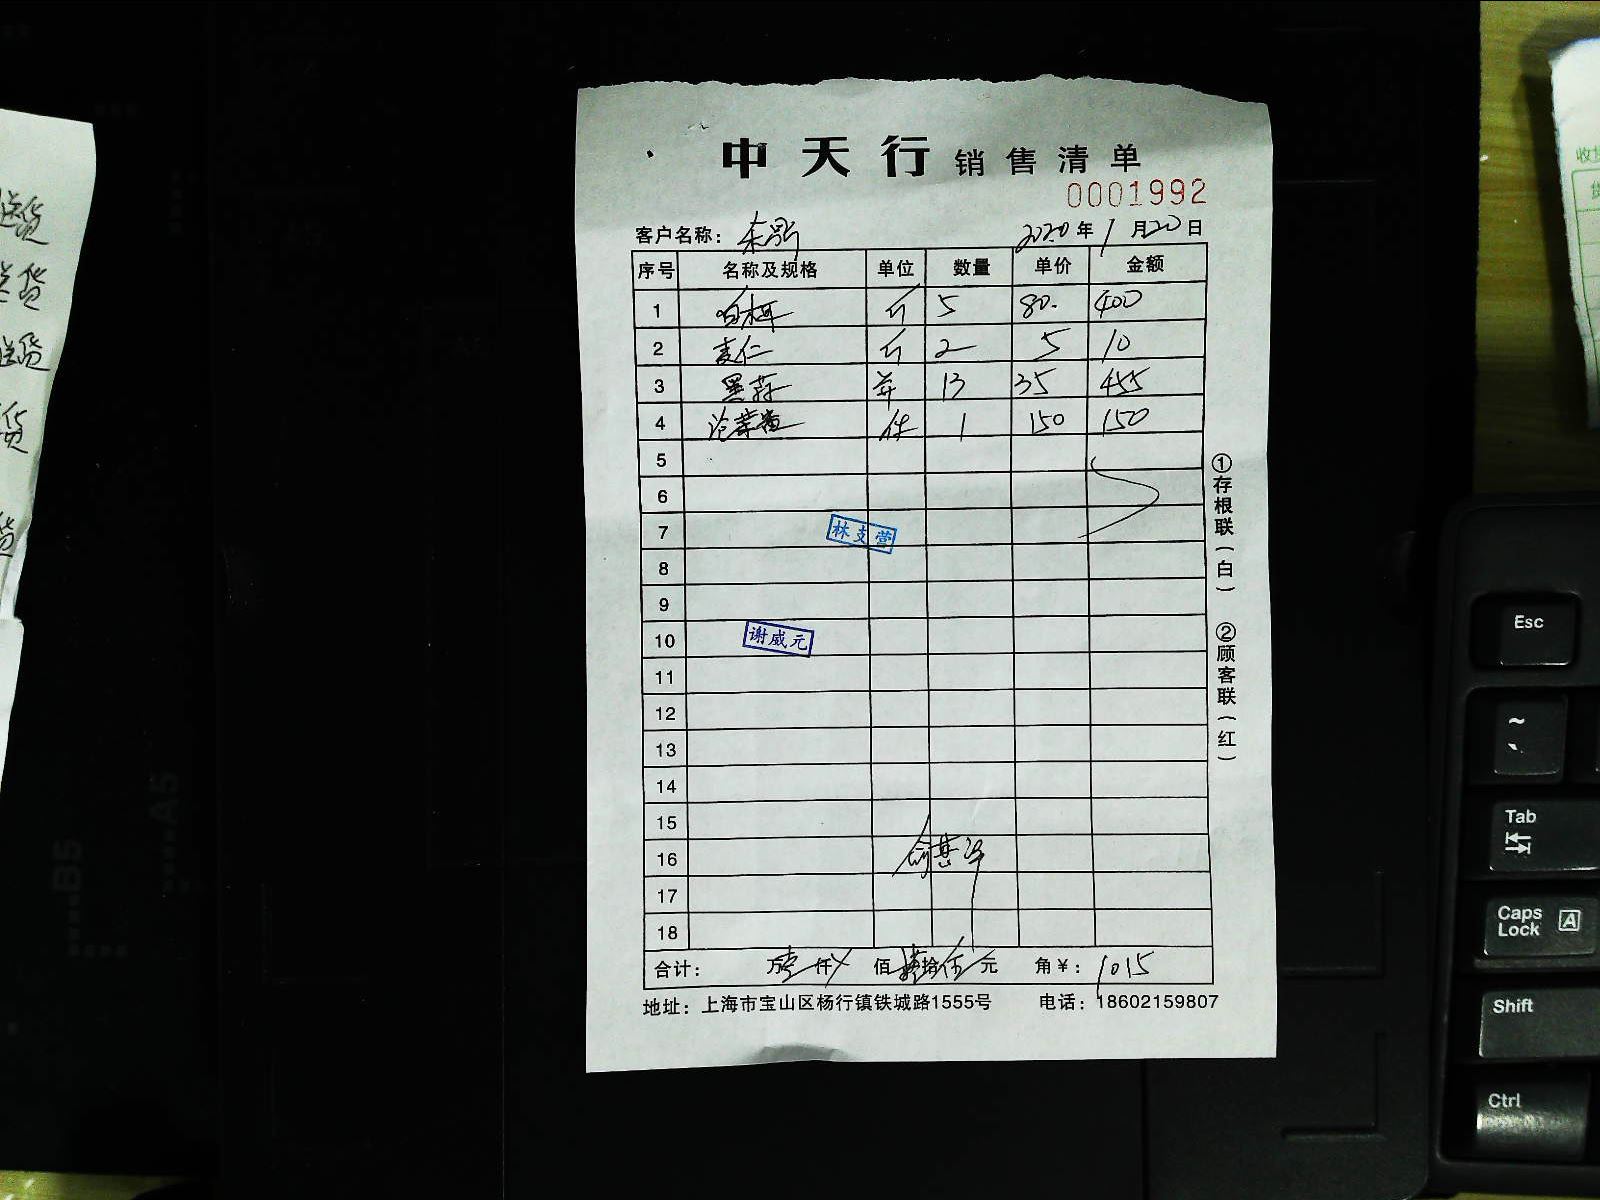 中天行 销售清单
0001992
客户名称： 2020年1月20日
序号 名称及规格 单位 数量 单价 金额
1 斤 5 80. 400
2 麦仁 斤 2 5 10
3 黑蒜 13 35 455
4 件 1 150 150
5
6
7 林支营
8
9
10 谢威元
11
12
13
14
15
16
17
18
合计： 万 仟 佰 拾伍元 角￥：1015
地址：上海市宝山区杨行镇铁城路1555号 电话：18602159807
①存根联（白） ②顾客联（红）
送货
货
送货
货
货
Esc
~
Tab
Caps Lock A
Shift
Ctrl
B5
A5